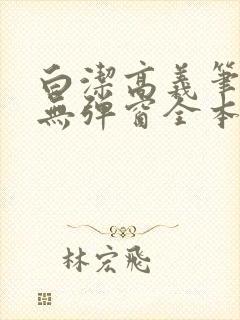 白潔高義筆
無彈窗全本
林宏飛